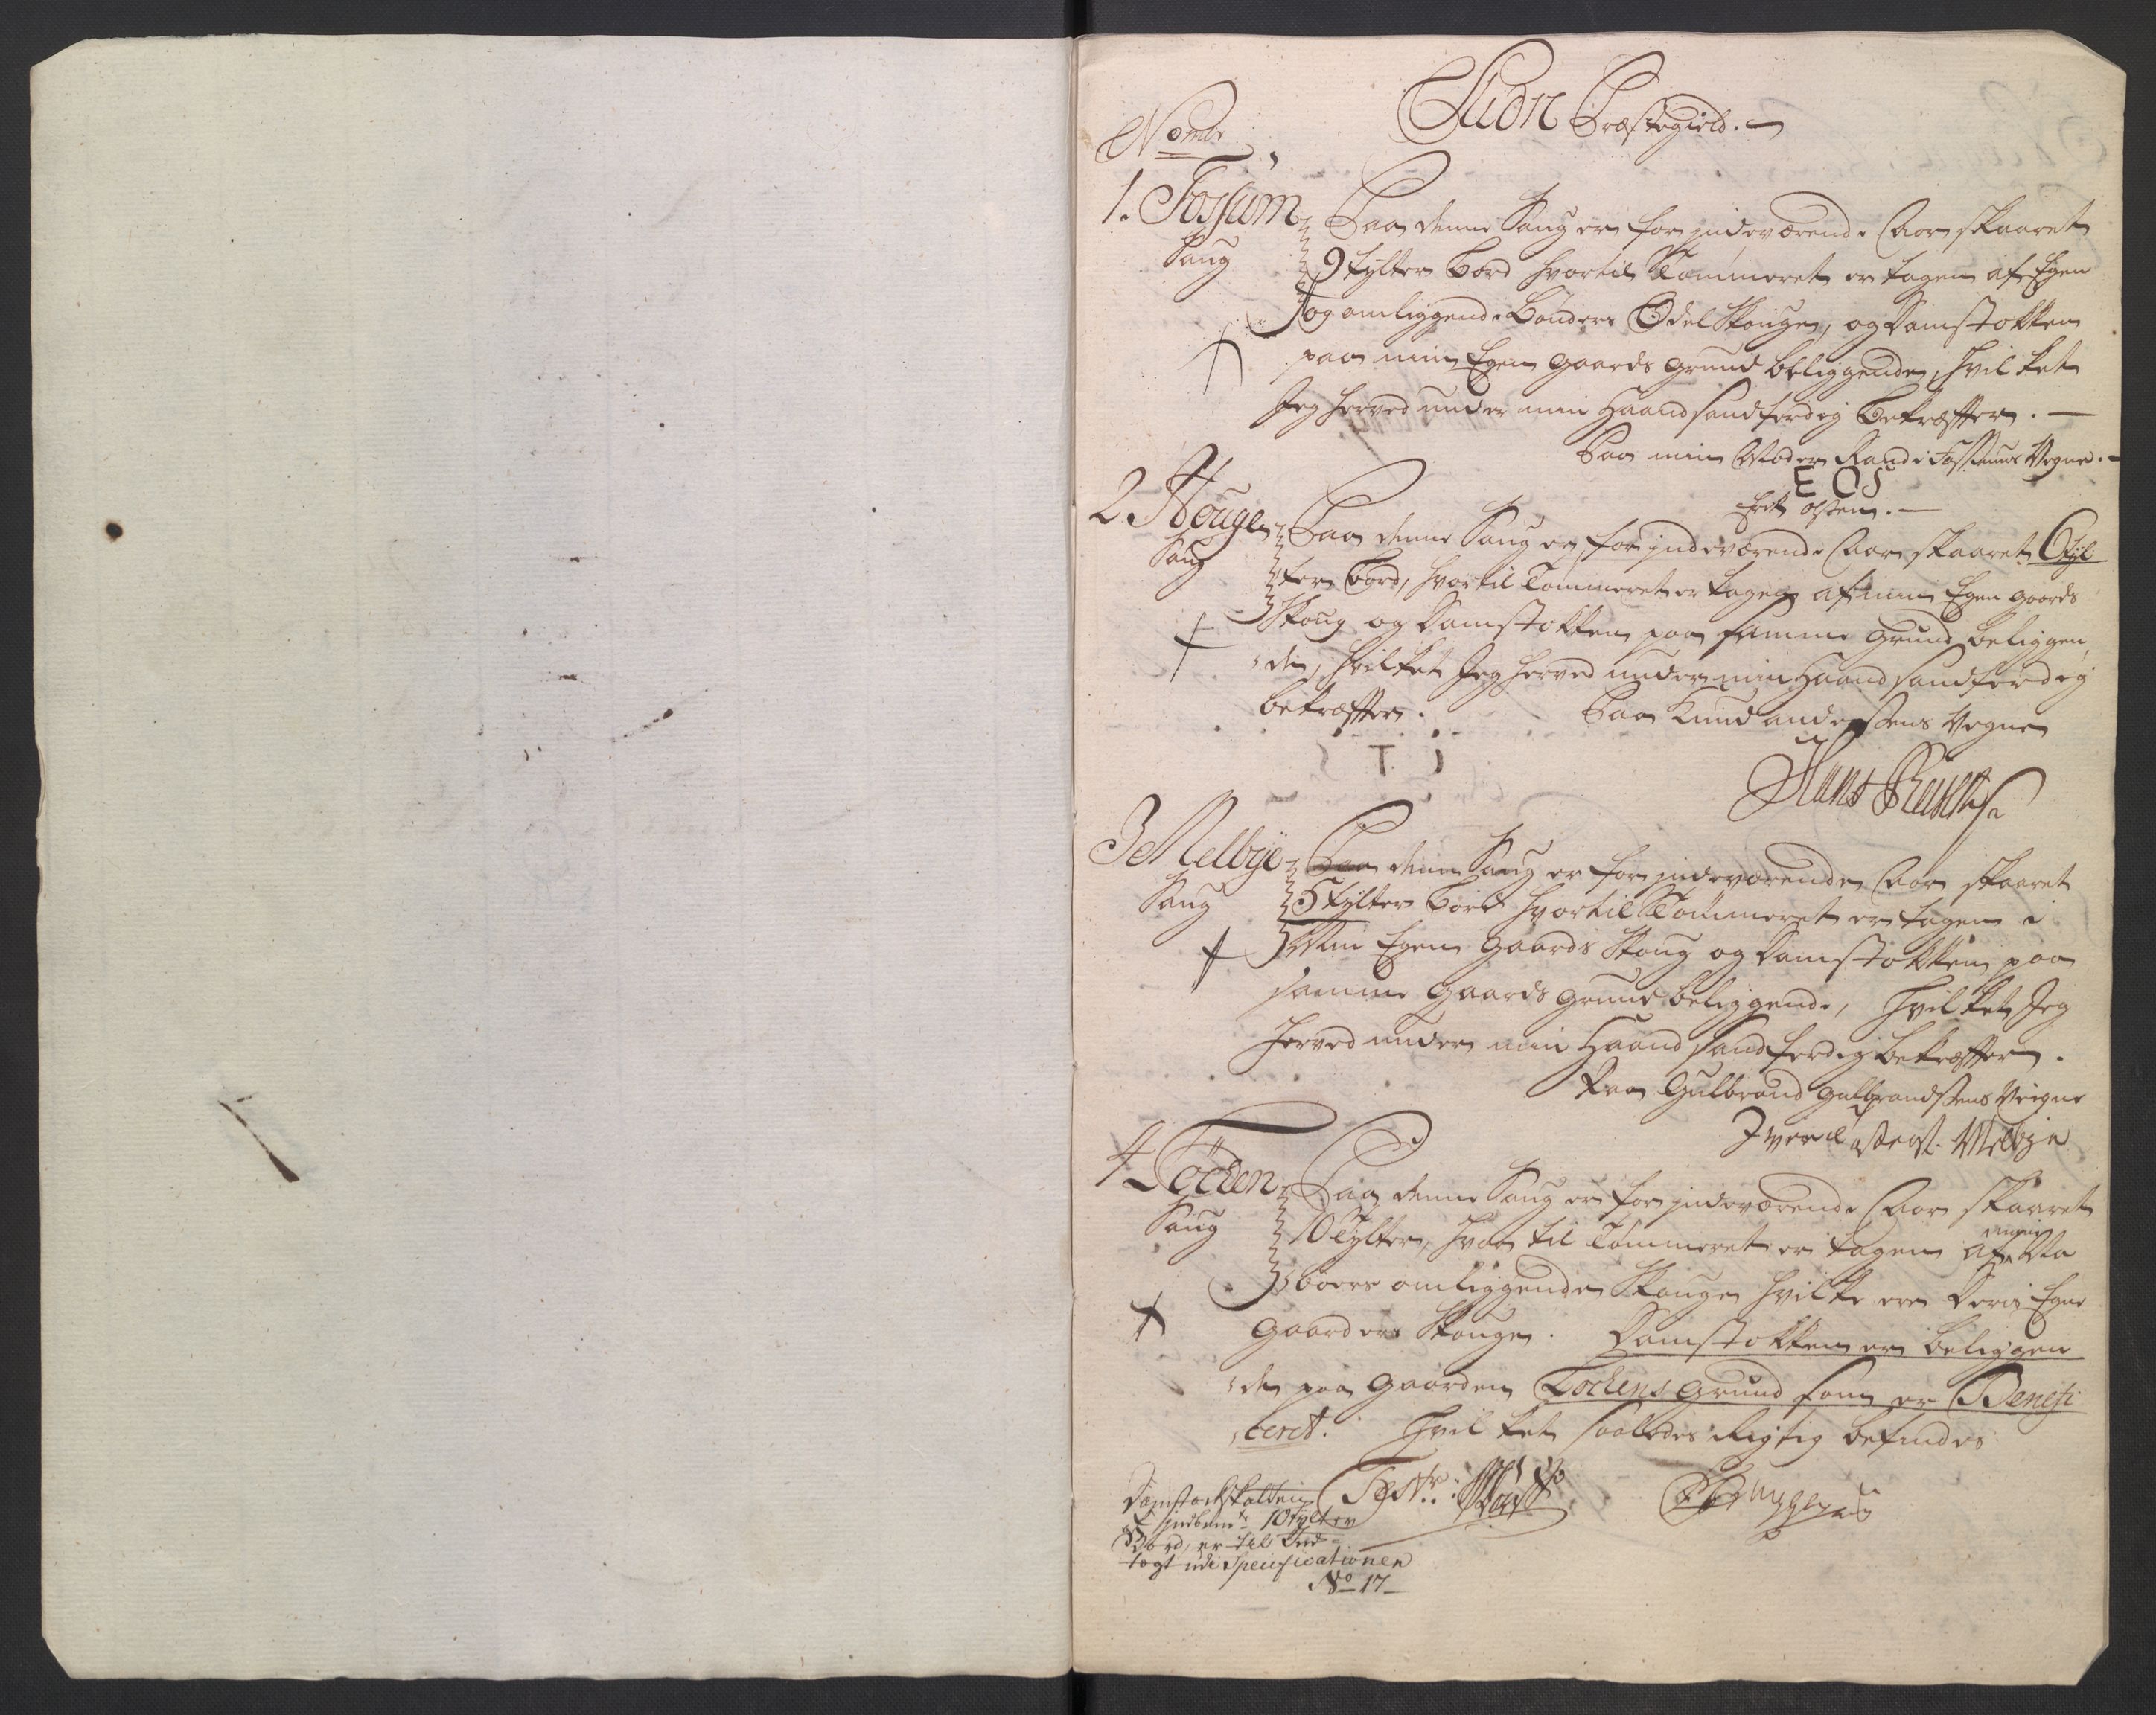 Præstegield.
Nombr
1. Fossum Paa denne Saug er for indeværende Aar skaaret
Saug 9 tylter bord hvortil Tømmeret er tagen af Egen
og omliggende Bønders Odel Skouge, og Damstokken
paa min Egen gaards grund beliggende, hvilket
Jeg herved under min Haand sandferdig bekræfter.
Paa min Moder Rande Fossums Vegne.
E O S
2. Hougen Paa denne Saug er for indeværende Aar skaaret 6 tyl
Saug ter bord, hvortil Tømmeret er tagen af min Egen gaards
Skoug og Damstokken paa samme grund beliggen
de, hvilket Jeg herved under min Haand sandferdig
bekræfter. Paa Knud anderssens Vegne
Hans
3 Melbye Paa denne Saug er for indeværende Aar skaaret
Saug 5 tylter bord hvortil Tømmeret er tagen i
Min Egen Gaards Skoug og Damstokken paa
samme gaards grund beliggende, hvilket Jeg
herved under min Haand sandferdig bekræfter.
Paa Gulbrand gulbrandssens Veigne
Melbye
4 Töchen Paa denne Saug er for indeværende Aar skaaret
Saug 10 Tylter, hvor til Tømmeret er tagen af min Na
boers omliggende Skouge hvilke ere Deris Egne
gaarders Skouge. Damstokken er beliggen
de paa gaarden Tochens grund som er Benefi
ceret. Hvilket saaledes Rigtig befindes
Damstockskatten Test:
indbemte 10 tylter
Bord, er til Ind
tegt udi Specificationen
No 17